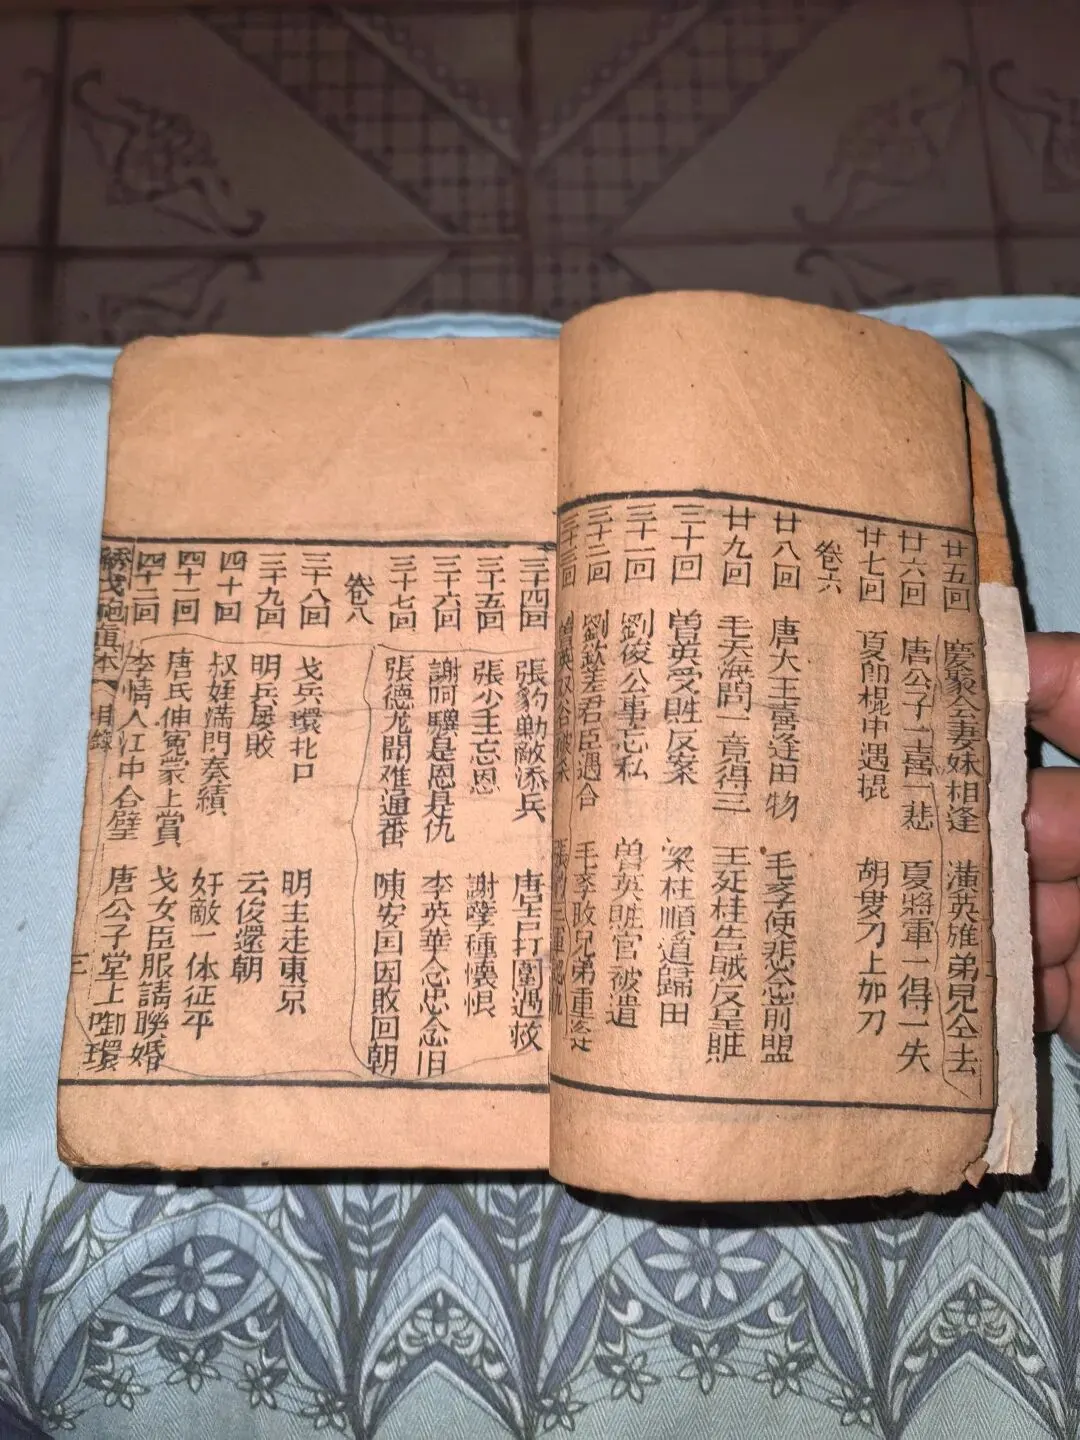 廿五回 慶聚全妻妹相逢 漢英雄弟兄仝去
廿六回 唐公子一喜一悲 夏將軍一得一失
廿七回 夏郎棍中遇棍 胡叟刀上加刀
卷六
廿八回 唐大王喜逢田物 毛李使悲念前盟
廿九回 毛天海問一竟得三 王延桂告賊反呈賍
三十回 曽英受賍反案 梁柱順道歸田
三十一回 劉俊公事忘私 曽英賍官被遺
三十二回 劉欽差君臣遇合 毛李敗兄弟重逢
三十三回
三十四回 張豹勦敵添兵 唐吉打圍遇救
三十五回 張少主忘恩 謝孽種懷恨
三十六回 謝阿驥是恩是仇 李英華念忠念旧
三十七回 張德龙聞难通番 陳安国因敗回朝
卷八
三十八回 戈兵環北口 明主走東京
三十九回 明兵屡敗 云俊還朝
四十回 叔姪满門奏績 奸敵一体征平
四十一回 唐氏伸冤蒙上賞 戈女臣服請聨婚
四十二回 李情人江中合璧 唐公子堂上啣環
綉戈袍真本 目錄 三